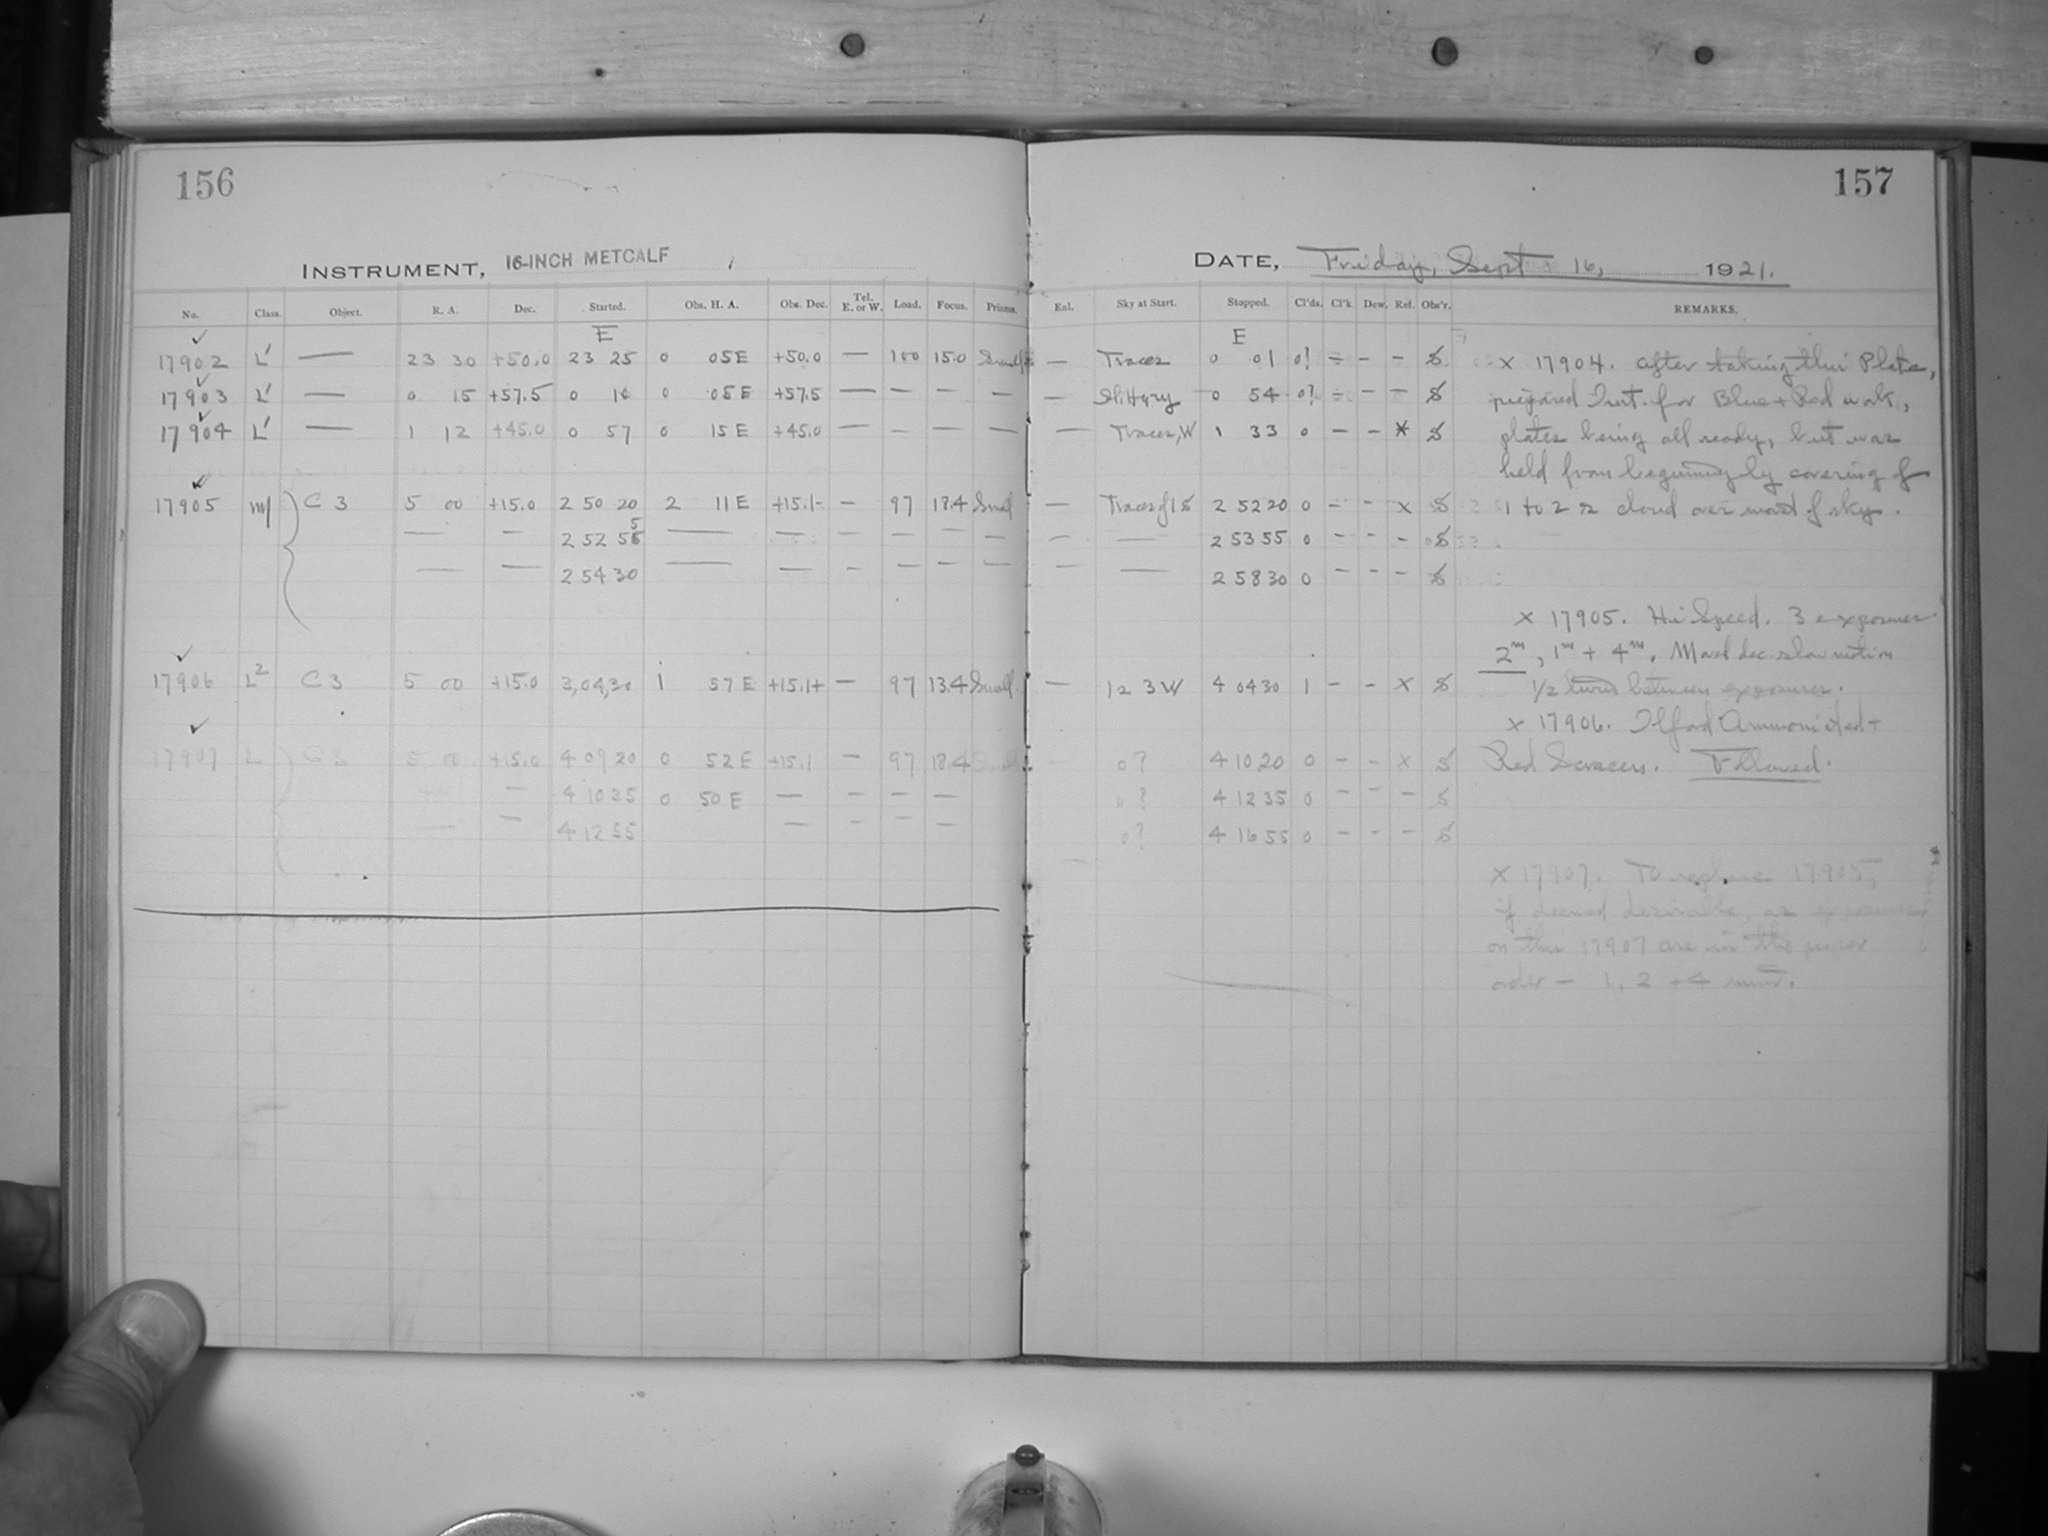 156
INSTRUMENT, 16-INCH METCALF
No. Class. Object. R. A. Dec. Started. Obs. H. A. Obs. Dec. Tel. E. or W. Load. Focus. Prisms.
E
17902 L' — 23 30 +50.0 23 25 0 05 E +50.0 — 100 15.0
17903 L' — 0 15 +57.5 0 0 05 E +57.5 — — — —
17904 L' — 1 12 +45.0 0 57 0 15 E +45.0 — — — —
17905 C 3 5 00 +15.0 2 50 20 2 11 E +15.1 — 97 Small
— — 2 52 55 — — — — — —
— — 2 54 30 — — — — — —
17906 L2 C 3 5 00 +15.0 3,04,30 1 57 E +15.1+ — 97 13.4 Small
17907 L C 3 5 00 +15.0 4 09 20 0 52 E +15.1 — 97 18.4
— — 4 10 35 0 50 E — — — —
— — 4 12 55 — — — —
157
DATE, Friday, Sept 16, 1921.
Enl. Sky at Start. Stopped. Cl'ds. Cl'k Dew. Ref. Obs'r. REMARKS.
E
— Traces 0 01 0? – – – S
— Sl. Hazy 0 54 0? – – – S
— Traces, W 1 33 0 – – * S
— Traces of 2 52 20 0 – – x S
— — 2 53 55 0 – – – S
— — 2 58 30 0 – – – S
— 12 3 W 4 04 30 1 – – x S
— 0? 4 10 20 0 – – x S
0? 4 12 35 0 – – – S
0? 4 16 55 0 – – – S
x 17904. After taking this Plate,
prepared Inst. for Blue + Red work,
plates being all ready, but was
held from beginning by covering of
1 to 2 cloud over most of sky.
x 17905. Hi Speed. 3 exposures
2m, 1m + 4m. Moved dec. slow motion
1/2 turn between exposures.
x 17906. Ilford Ammoniated +
Red Screen. Followed.
x 17907. To replace 17905,
if deemed desirable, as exposures
on this 17907 are in the proper
order — 1, 2 + 4 min.